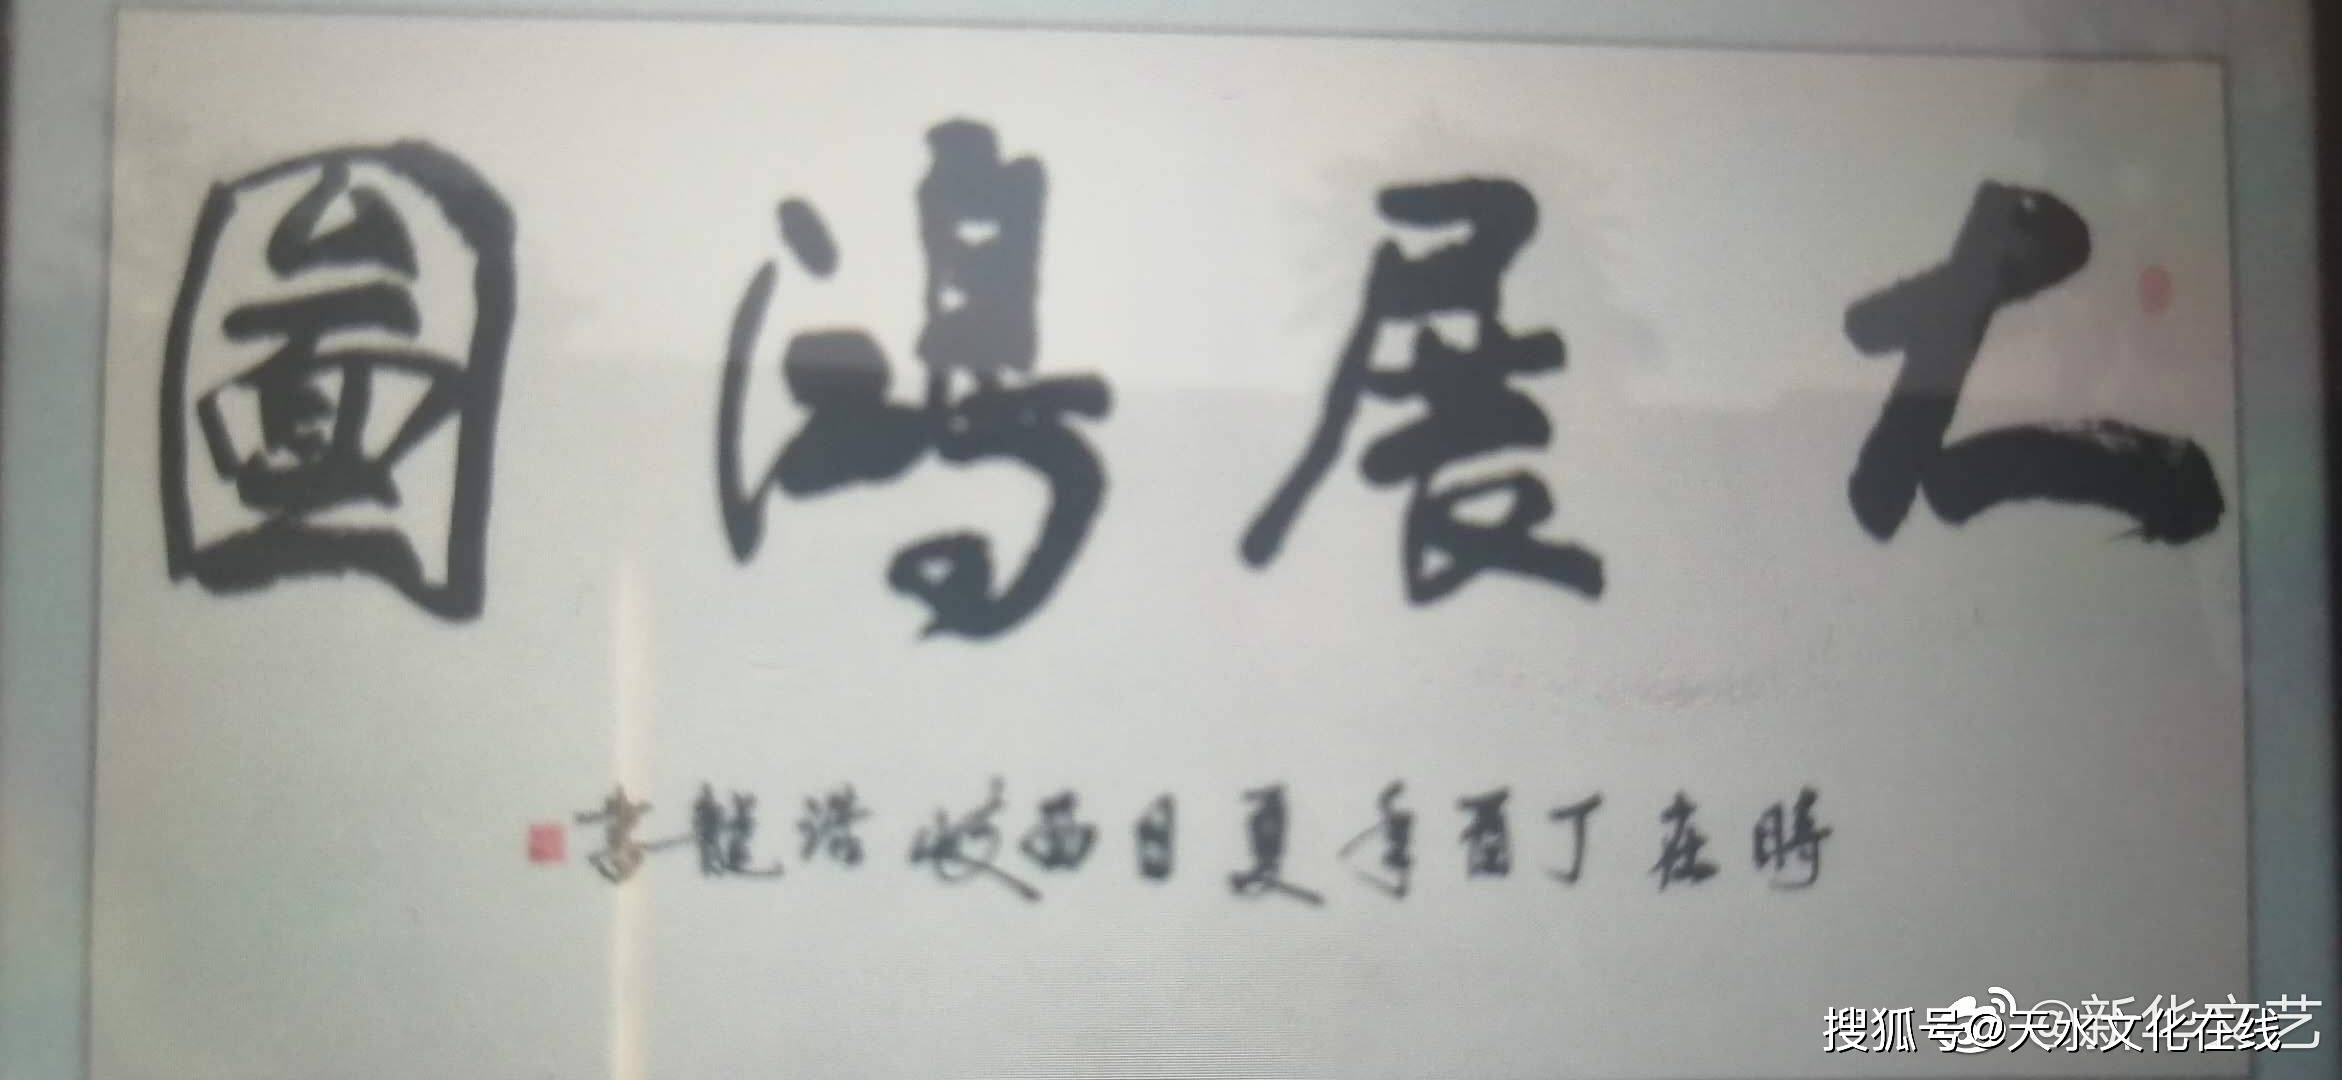 大展鴻圖
時在丁酉年夏日西岐浩龍書
搜狐号@天水文化在线
@新华文艺